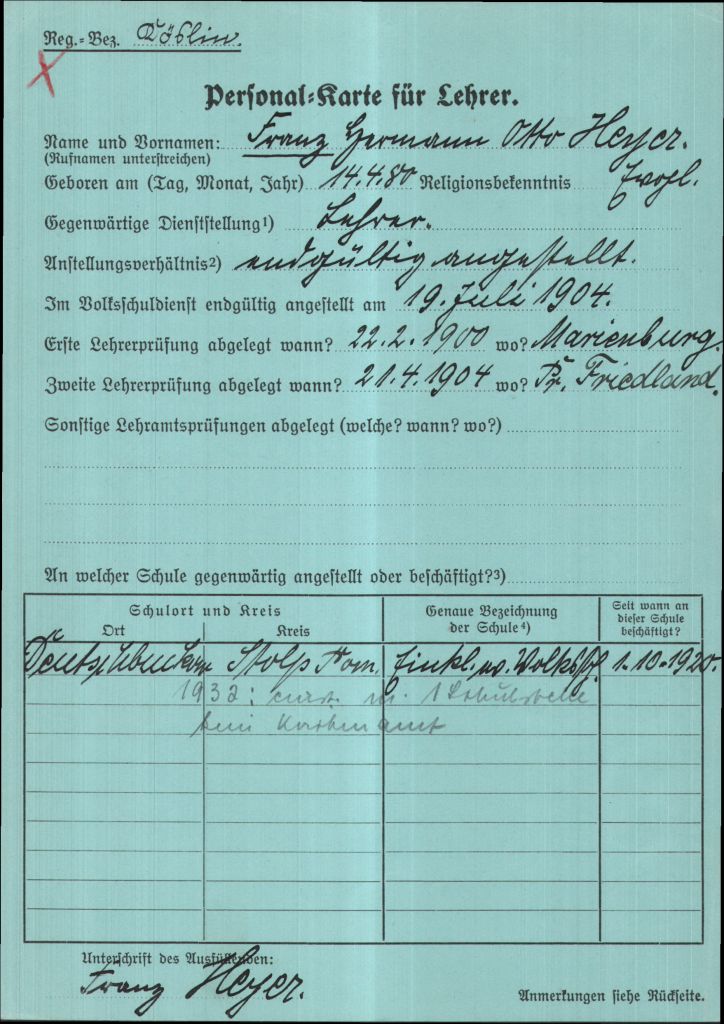 Reg.-Bez. Köslin.
Personal-Karte für Lehrer.
Name und Vornamen: Franz Hermann Otto Heyer.
(Rufnamen unterstreichen)
Geboren am (Tag, Monat, Jahr) 14.4.80 Religionsbekenntnis Evgl.
Gegenwärtige Dienststellung¹) Lehrer.
Anstellungsverhältnis²) endgültig angestellt.
Im Volksschuldienst endgültig angestellt am 19. Juli 1904.
Erste Lehrerprüfung abgelegt wann? 22.2.1900 wo? Marienburg.
Zweite Lehrerprüfung abgelegt wann? 21.4.1904 wo? Pr. Friedland.
Sonstige Lehramtsprüfungen abgelegt (welche? wann? wo?)
An welcher Schule gegenwärtig angestellt oder beschäftigt?³)
Schulort und Kreis
Ort Kreis
Genaue Bezeichnung der Schule⁴)
Seit wann an dieser Schule beschäftigt?
Stolp Pom. Einkl. ev. Volkssch. 1.10.1920.
1932: ev. m. 1 Schulstelle
kein Kirchenamt
Unterschrift des Ausfüllenden:
Franz Heyer.
Anmerkungen siehe Rückseite.